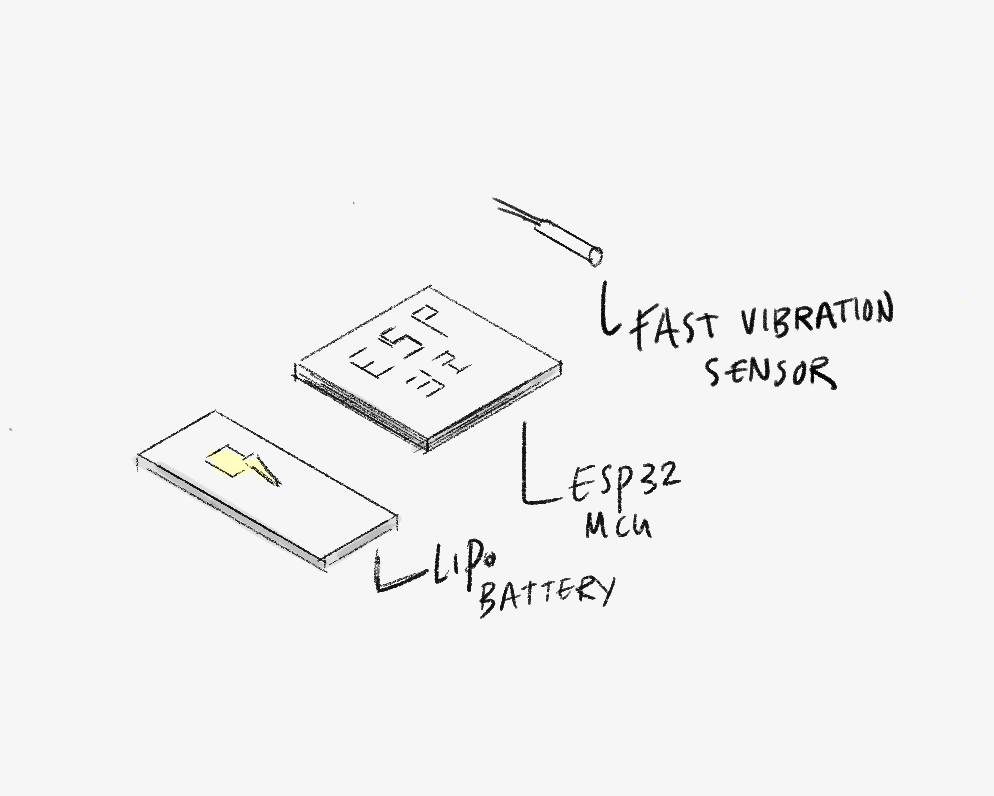 FAST VIBRATION
SENSOR
ESP
32
ESP32
MCU
LIPO
BATTERY